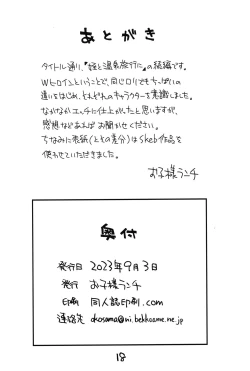 あとがき
タイトル通り、『姪と温泉旅行に』の続編です。
Wヒロインということで、同じロリでもちっぱいの
違いをはじめ、それぞれのキャラクターを意識しました。
なかなかエッチに仕上がったと思いますが、
感想などあればお聞かせください。
ちなみに表紙(とその差分)はSkeb作品を
使わせていただきました。
お子様ランチ
奥付
発行日 2023年9月3日
発行 お子様ランチ
印刷 同人誌印刷.com
連絡先 okosama@ni.bekkoame.ne.jp
18